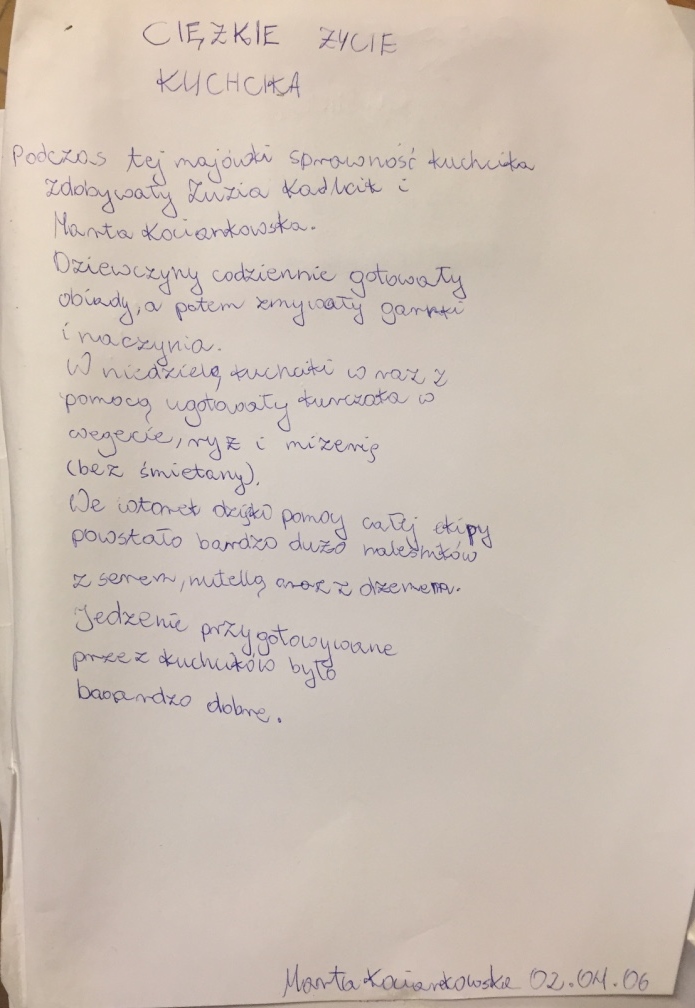 CIĘŻKIE ŻYCIE
KUCHCIKA
Podczas tej majówki sprawność kuchcika
zdobywały Zuzia Kadlcik i
Marta Kociankowska.
Dziewczyny codziennie gotowały
obiady, a potem zmywały garnki
i naczynia.
W niedzielę kuchciki wraz z
pomocą ugotowały kurczaka w
wegecie, ryż i mizerię
(bez śmietany).
We wtorek dzięki pomocy całej ekipy
powstało bardzo dużo naleśników
z serem, nutellą oraz z dżemem.
Jedzenie przygotowywane
przez kuchcików było
baaardzo dobre.
Marta Kociankowska 02.04.06